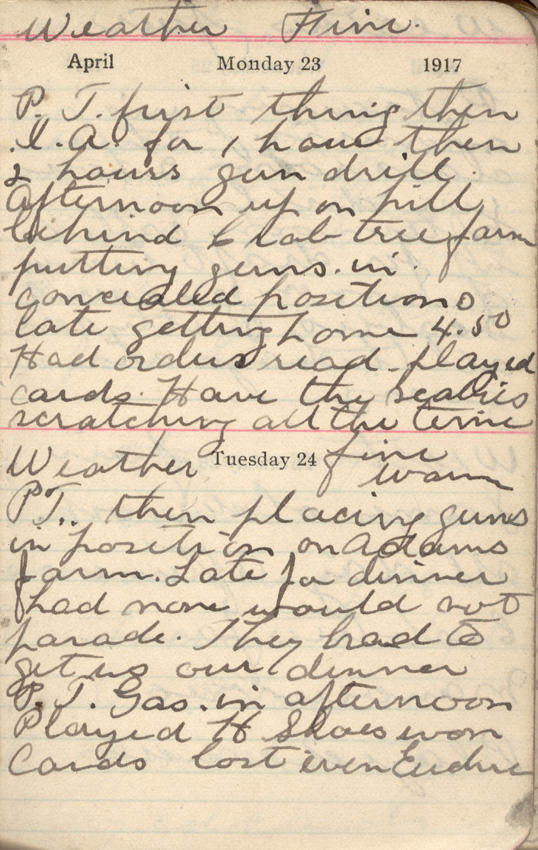 Weather Fine.
April Monday 23 1917
P. T. first thing then
I.A. for 1 hour then
2 hours gun drill.
Afternoon up on hill
behind Crab tree farm
putting guns in
concealed positions
late getting home 4.50
Had orders read. played
cards. Have the scabies
scratching all the time
Weather Tuesday 24 fine
warm
P.T., then placing guns
in position on Adams
farm. Late for dinner
had none would not
parade. They had to
get us our dinner
P. T. Gas. in afternoon
Played H Shoes won
Cards lost even Euchre